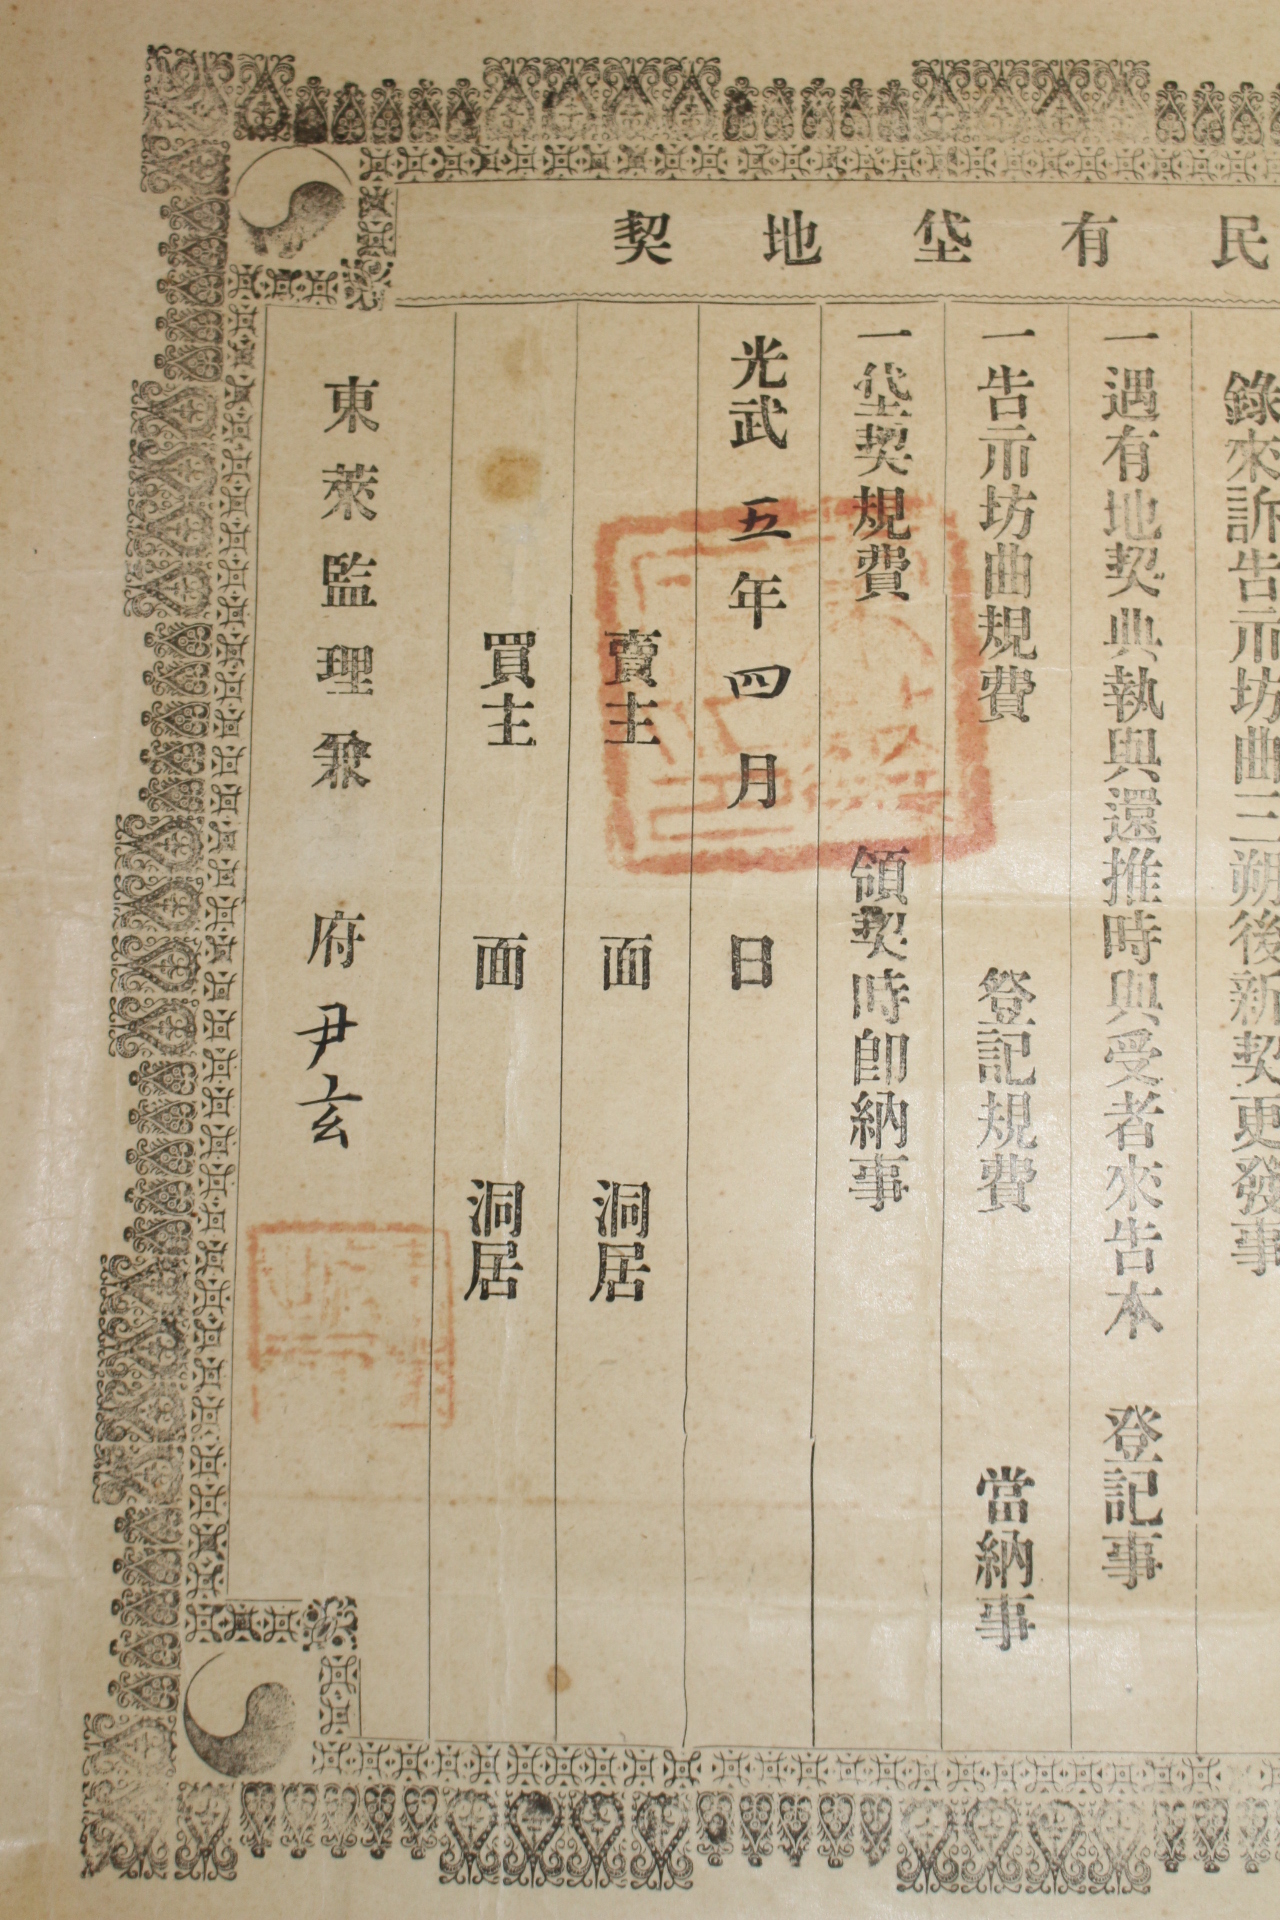 民有垈地契
錄來訴告示坊曲三朔後新契更發事
一遇有地契典執與還推時與受者來告本 登記事
一告示坊曲規費 登記規費 當納事
一垈契規費 領契時卽納事
光武五年四月 日
賣主 面 洞居
買主 面 洞居
東萊監理兼 府尹玄